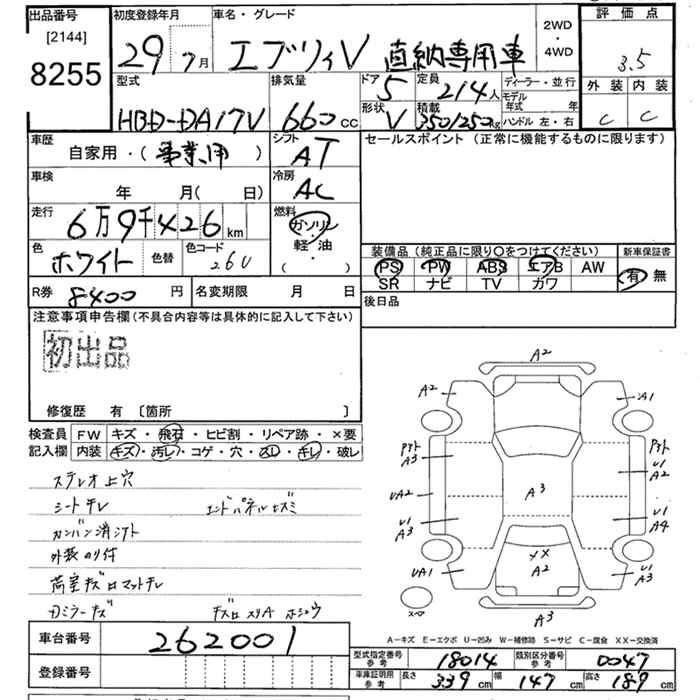 出品番号 初度登録年月 車名・グレード 2WD・4WD 評価点
[2144]
8255
29年7月 エブリィV 直納専用車 3.5
型式 排気量 ドア 定員 ディーラー・並行 外装 内装
HBD-DA17V 660cc 5 2/4人 モデル年式 年
形状 積載 ハンドル 左・右
V 350/250kg C C
車歴 シフト セールスポイント(正常に機能するものに限ります)
自家用・(事業用) AT
車検 冷房
年 月(日) AC
走行 燃料
6万9千426km ガソリン・軽油
( )
色 色替 色コード
ホワイト 26U
装備品(純正品に限り○をつけてください) 新車保証書
PS PW ABS エアB AW 有 無
SR ナビ TV カワ
R券 8400円 名変期限 月 日 後日品
注意事項申告欄(不具合内容等は具体的に記入して下さい)
初出品
修復歴 有 〔箇所 〕
検査員 FW キズ・飛石・ヒビ割・リペア跡・×要
記入欄 内装 キズ・汚レ・コゲ・穴・スレ・キレ・破レ
ステレオ上穴
シートチレ エンドパネルヒズミ
カンバン消シアト
外装のり付
荷室キズロマットチレ
Dミラーキズ
A2
A2 A1
A3 U1
A2
UA2 A3
U1 U1
A3 A4
XX
UA1 A2 U1
A3
A3
A-キズ E-エクボ U-凹み W-補修跡 S-サビ C-腐食 XX-交換済
車台番号 262001
登録番号
型式指定番号 参考 18014 類別区分番号 参考 0047
車庫証明用 参考 長さ 339cm 幅 147cm 高さ 189cm